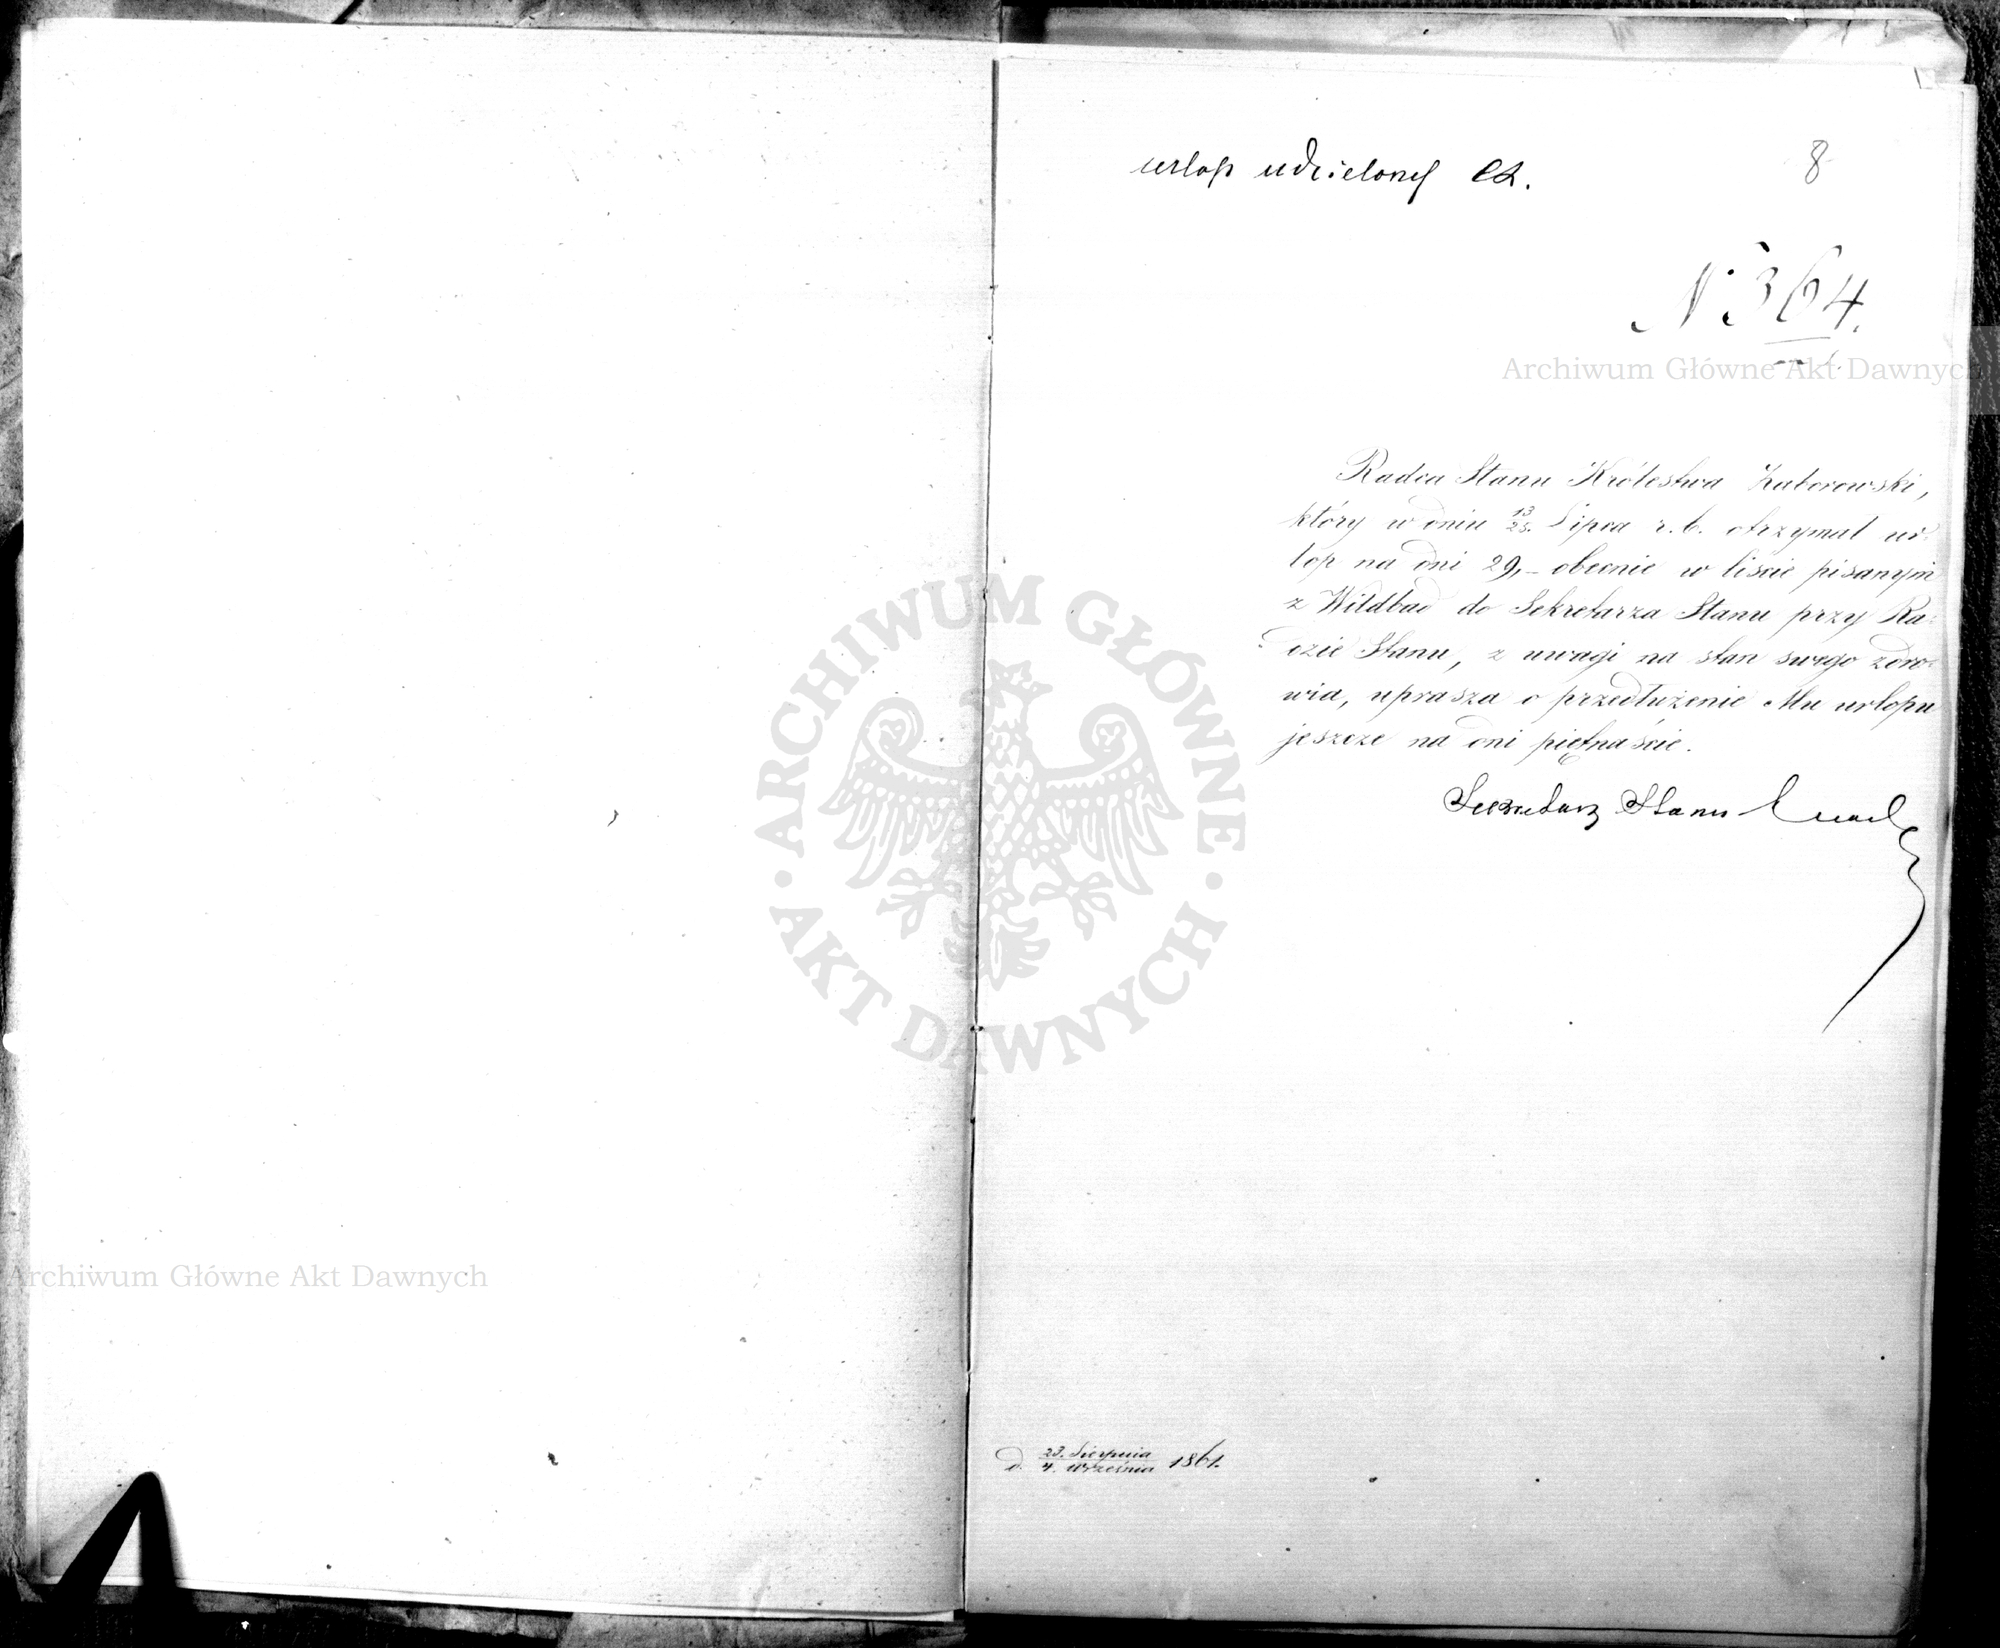 urlop udzielony
8
N. 364.
Archiwum Główne Akt Dawnych
Radca Stanu Królestwa Zaborowski,
który w dniu 13/25. Lipca r. b. otrzymał ur-
lop na dni 29, – obecnie w liście pisanym
z Wildbad do Sekretarza Stanu przy Ra-
dzie Stanu, z uwagi na stan swego zdro-
wia, uprasza o przedłużenie Mu urlopu
jeszcze na dni piętnaście.
Sekretarz Stanu
ARCHIWUM GŁÓWNE
AKT DAWNYCH
Archiwum Główne Akt Dawnych
d. 23. Sierpnia/4. Września 1861.